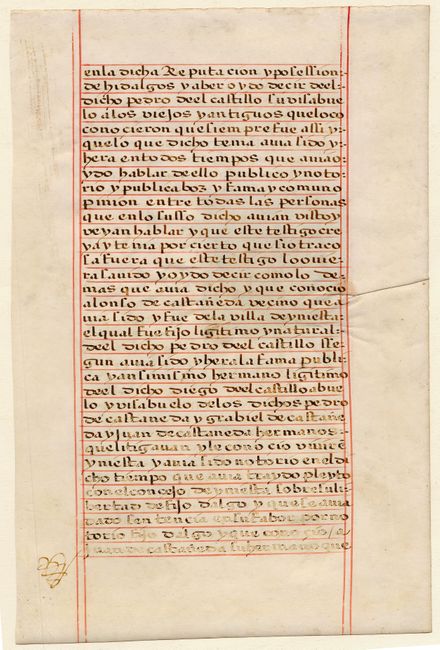 enla dicha Reputacion y posession-
de hidalgos y aber oydo decir deel-
dicho pedro deel castillo su visabue
lo a los viejos y antiguos que lo co
conocieron que siempre fue assi y-
que lo que dicho tenia auia sido y-
hera en todos tiempos que auia o-
ydo hablar de ello publico y noto-
rio y publica boz y fama y comun o
pinion entre todas las personas
que en lo susso dicho auian visto y
veyan hablar y que este testigo cre
ya y tenia por cierto que si otra co
sa fuera que este testigo lo ouie-
ra sauido y oydo decir como lo de-
mas que auia dicho y que conocio
alonso de castañeda vecino que a-
uia sido y fue de la villa de yniesta
el qual fue fijo ligitimo y natural-
deel dicho pedro deel castillo sse-
gun auia sido y hera la fama publi
ca y ansimismo hermano ligitimo
deel dicho diego deel castillo abue
lo y visabuelo de los dichos pedro
de castañeda y grabiel de castañe
da y Juan de castañeda hermanos-
que litigauan y le conocio viuir ē
yniesta y auia sido notorio en el di
cho tiempo que auia traydo pleyto
con el concejo de yniesta sobre su li-
bertad de fijo dalgo y que se auia
dado sentencia en su fabor por no
torio fijo dalgo y que conocio a
Juan de castañeda su hermano que